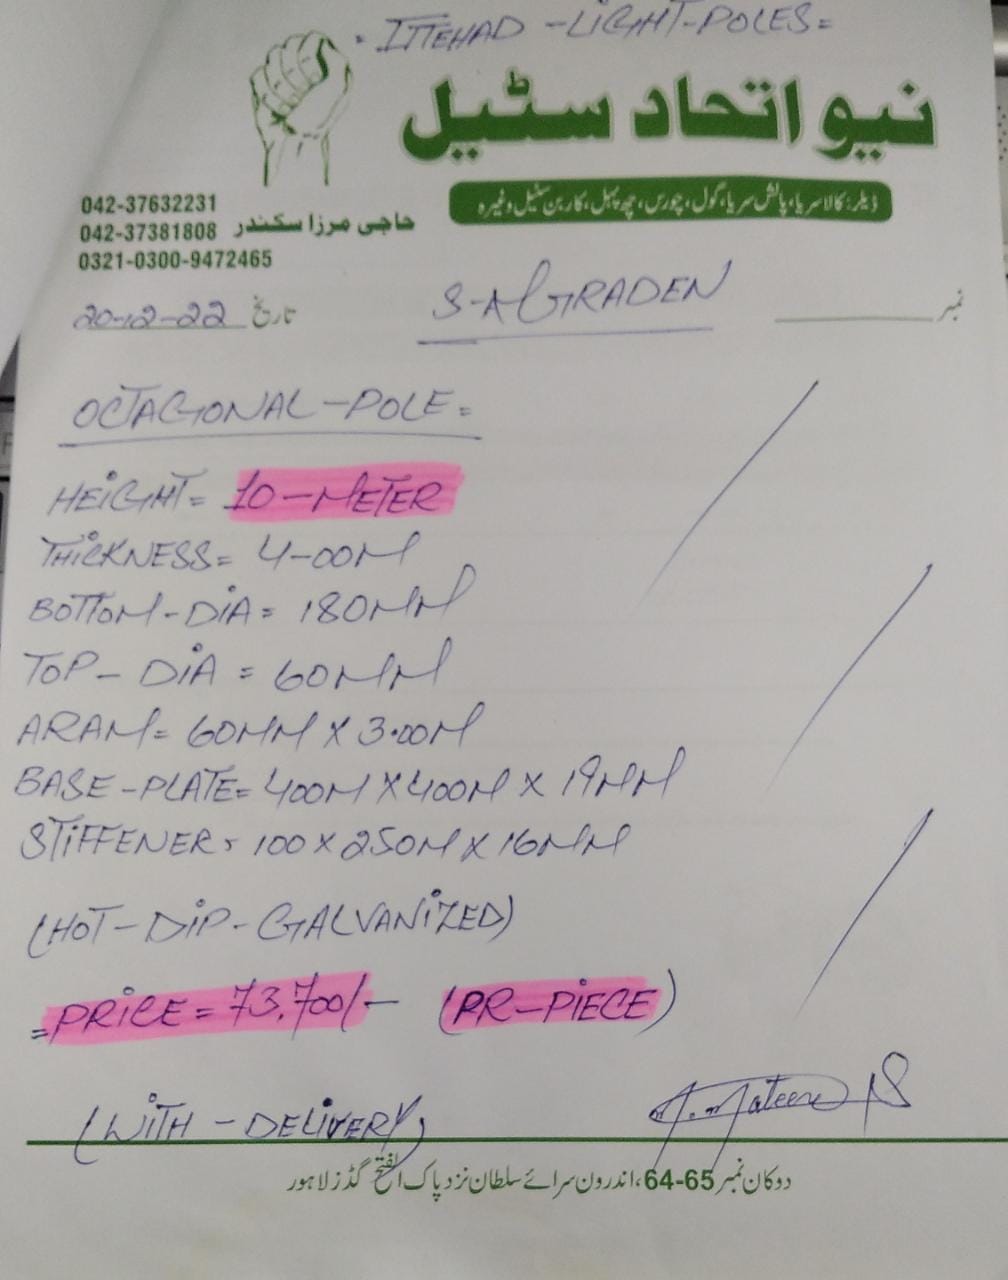 ITTEHAD - LIGHT - POLES =
نیو اتحاد سٹیل
ڈیلر: کالا سریا، پالش سریا، گول، چورس، چھ پہل، کاربن سٹیل وغیرہ
042-37632231
042-37381808 حاجی مرزا سکندر
0321-0300-9472465
تاریخ 20-12-22
S-A GRADEN
نمبر
OCTAGONAL - POLE =
HEIGHT = 10 - METER
THICKNESS = 4-00M
BOTTOM - DIA = 180MM
TOP - DIA = 60MM
ARAM = 60MM X 3.00M
BASE - PLATE = 400M X 400M X 19MM
STIFFENER = 100 X 250M X 16MM
(HOT - DIP - GALVANIZED)
= PRICE = 73,700/- (PR - PIECE)
(WITH - DELIVERY)
دوکان نمبر 65-64، اندرون سرائے سلطان نزد پاک الفتح گڈز لاہور